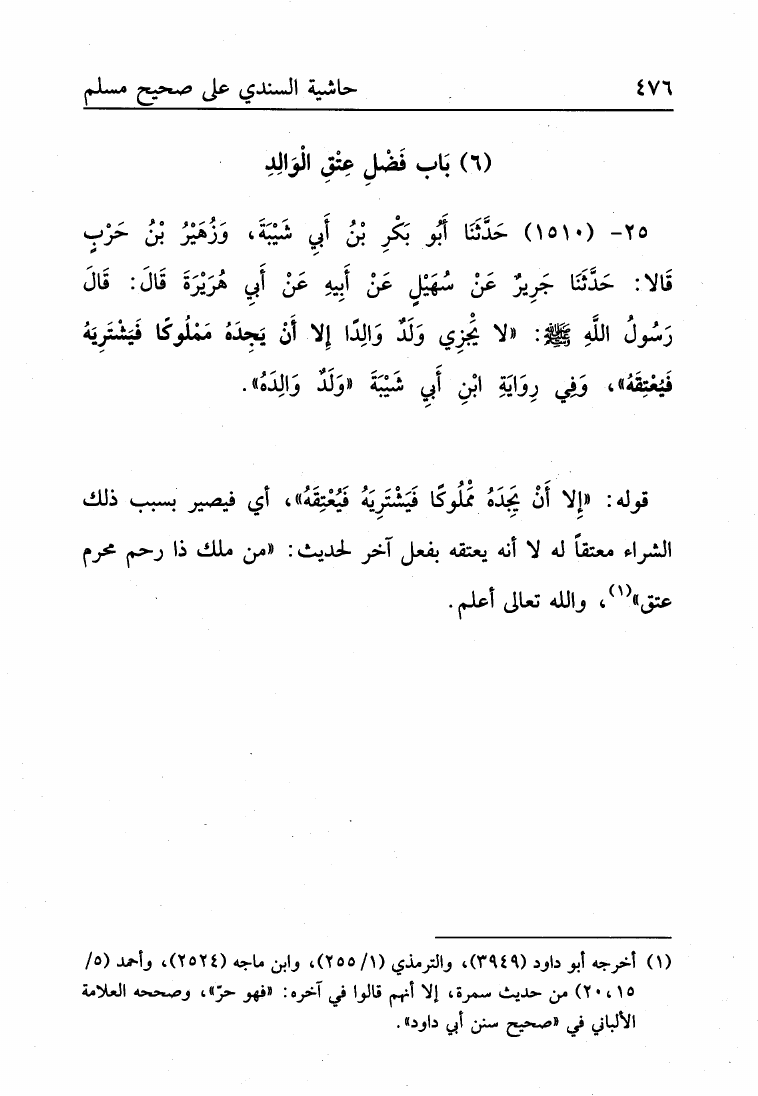 ٤٧٦ حاشية السندي على صحيح مسلم
(٦) بَاب فَضْلِ عِتْقِ الْوَالِدِ
٢٥- (١٥١٠) حَدَّثَنَا أَبُو بَكْرِ بْنُ أَبِي شَيْبَةَ، وَزُهَيْرُ بْنُ حَرْبٍ
قَالا: حَدَّثَنَا جَرِيرٌ عَنْ سُهَيْلٍ عَنْ أَبِيهِ عَنْ أَبِي هُرَيْرَةَ قَالَ: قَالَ
رَسُولُ اللَّهِ ﷺ: «لا يَجْزِي وَلَدٌ وَالِدًا إِلا أَنْ يَجِدَهُ مَمْلُوكًا فَيَشْتَرِيَهُ
فَيُعْتِقَهُ»، وَفِي رِوَايَةِ ابْنِ أَبِي شَيْبَةَ «وَلَدٌ وَالِدَهُ».
قوله: «إِلا أَنْ يَجِدَهُ مَمْلُوكًا فَيَشْتَرِيَهُ فَيُعْتِقَهُ»، أي فيصير بسبب ذلك
الشراء معتقاً له لا أنه يعتقه بفعل آخر لحديث: «من ملك ذا رحم محرم
عتق»(١)، والله تعالى أعلم.
(١) أخرجه أبو داود (٣٩٤٩)، والترمذي (١/ ٢٥٥)، وابن ماجه (٢٥٢٤)، وأحمد (٥/
١٥، ٢٠) من حديث سمرة، إلا أنهم قالوا في آخره: «فهو حرّ»، وصححه العلامة
الألباني في «صحيح سنن أبي داود».